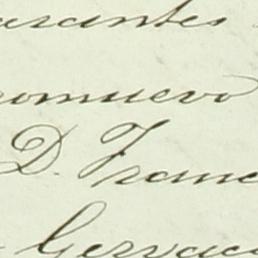 arantes
romuevo
D. Franc
Gervac